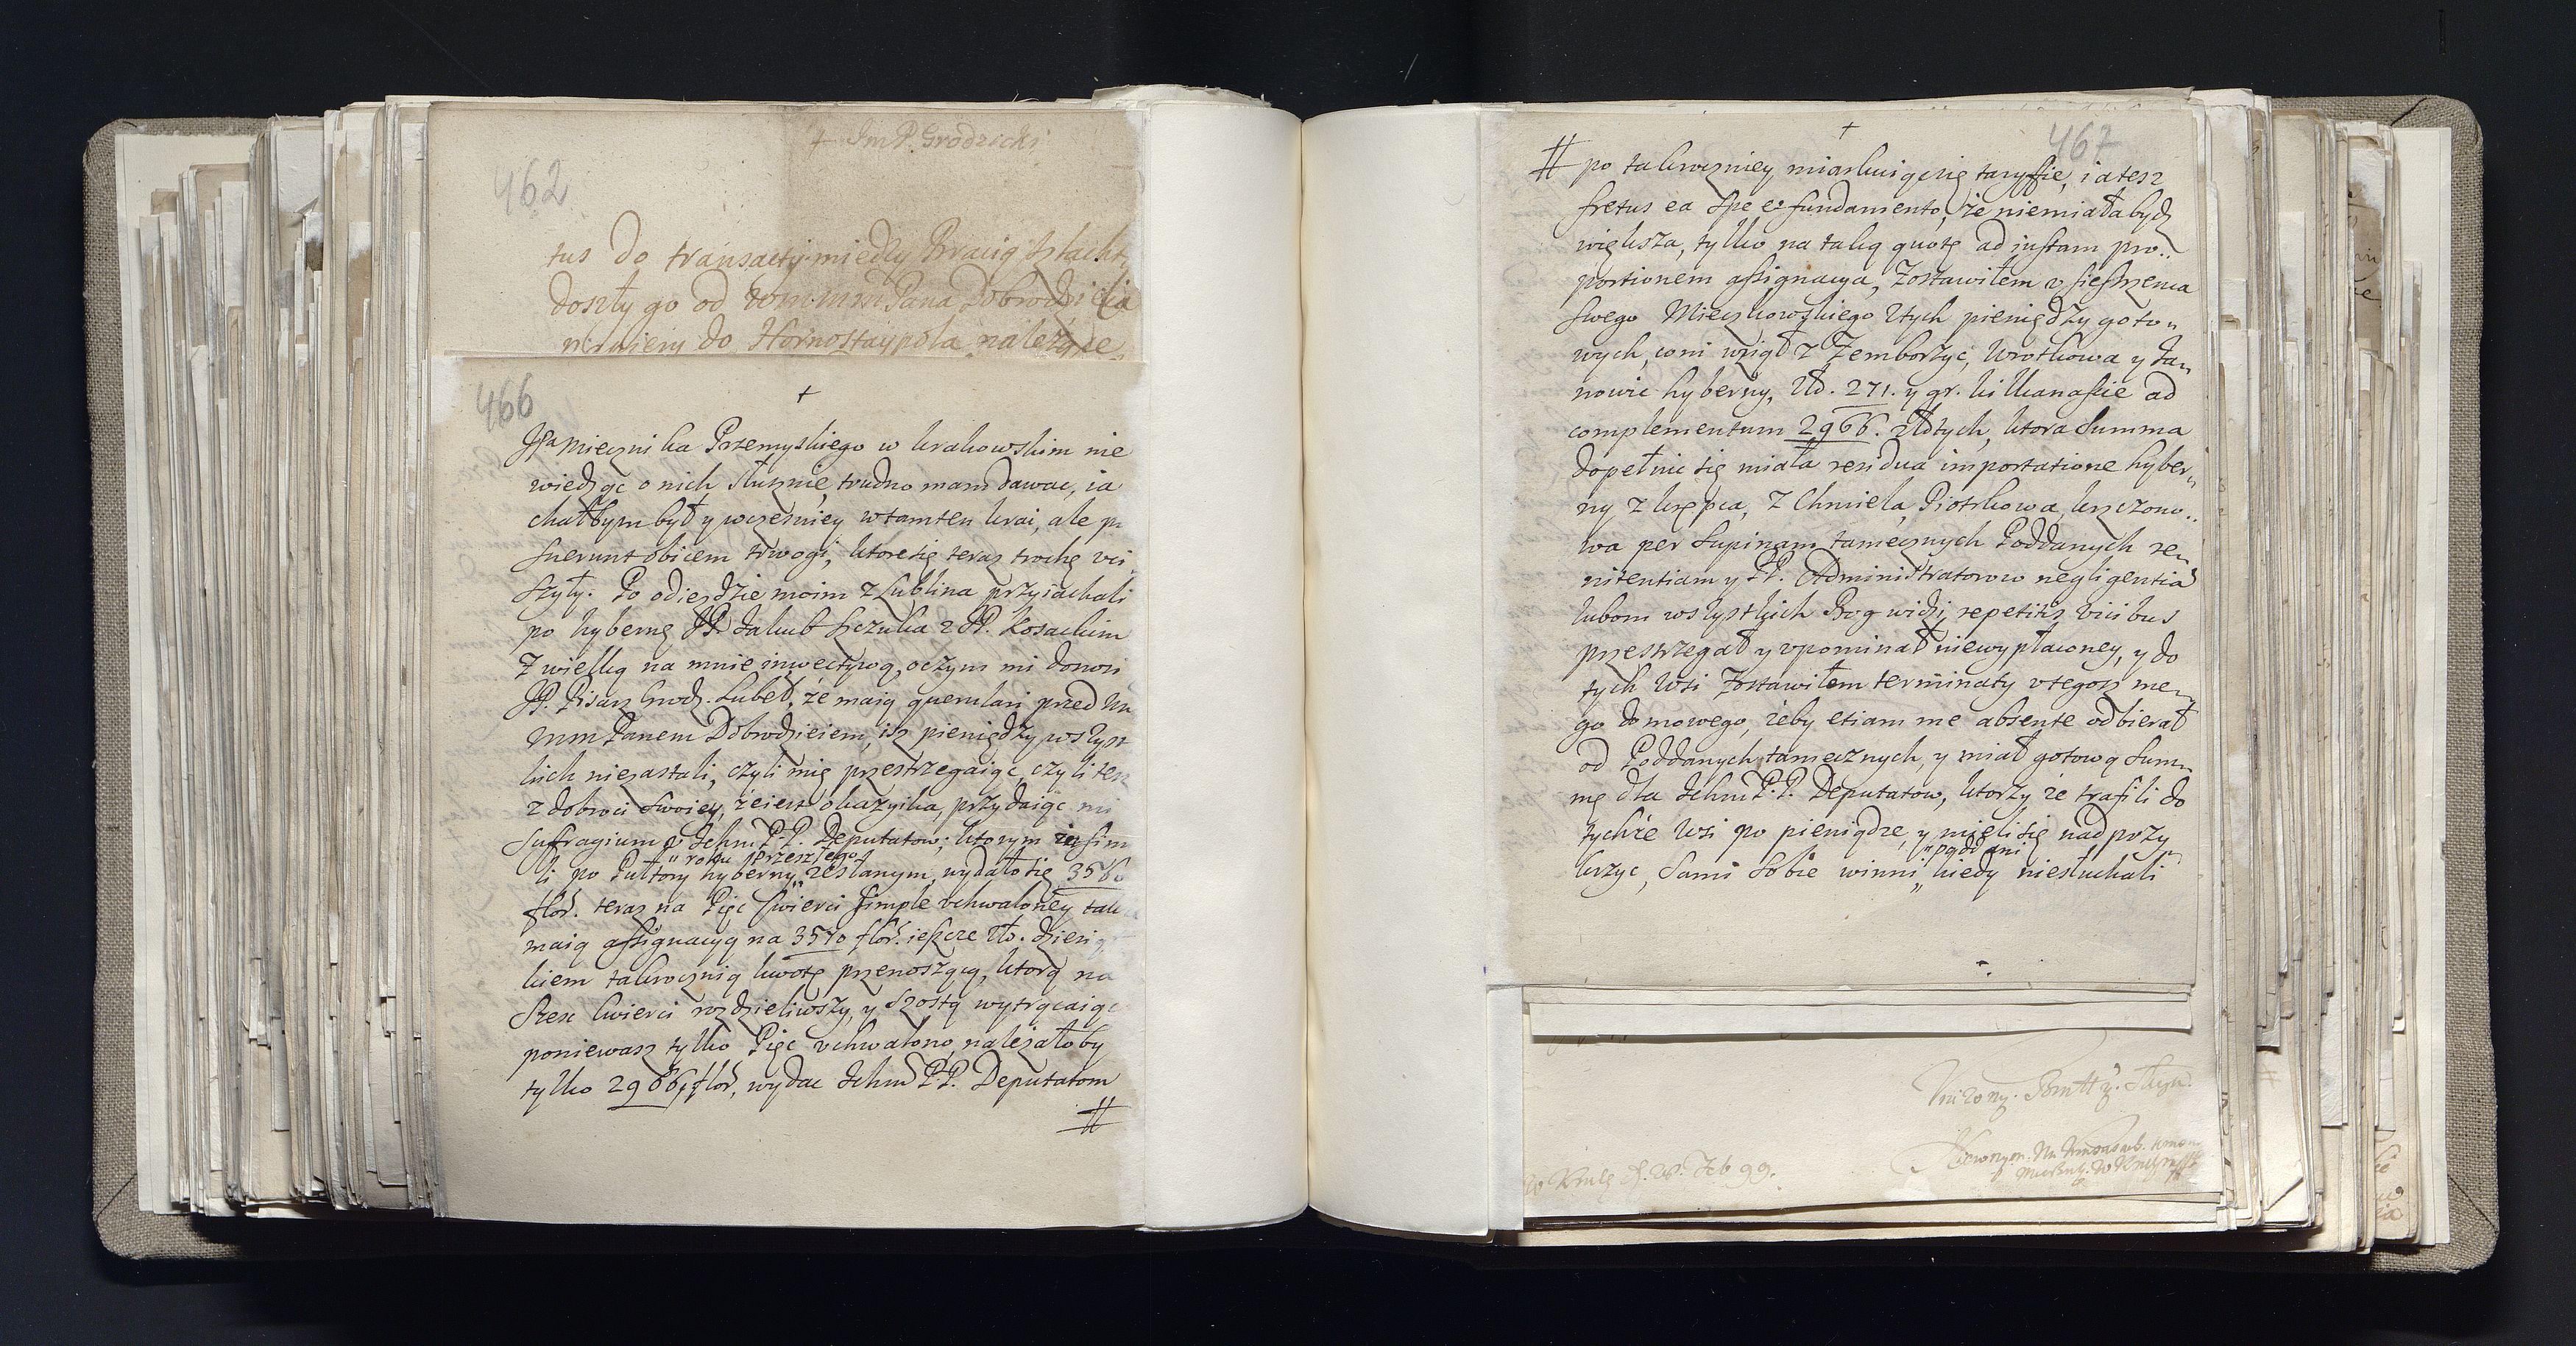 + Im P. Grodzicki
462
tus do transactij miedzy Bracią szlacht
doszły go od Wm mm Pana Dobrodzieia
do Hornostaypola należące
466
+
Jpa Miecznika Przemyskiego w krakowskim nie
wiedząc o nich słusznie, trudno mam dawac, ia
chałbym był y wczesniey w tamten krai, ale p
fuerunt obicem trwogi, ktore się teraz trochę uci
szyły. Po odiezdzie moim z Lublina przyiachali
po hybernę JP. Jakub Sczuka z JP. Kosackim
z wielką na mnie inwectywą, o czym mi donosi
JP. Pisarz Grodz. Lubel, że maią querulari przed Wm
mm Panem Dobrodzieiem, isz pieniędzy wszyst
kich niezastali, czyli mię przestrzegaiąc, czyli tesz
z dobroci swoiey, że iest okazyika, przydaiąc mi
suffragium v Ichm P.P. Deputatow; ktorym
" roku przeszłego
li po Pułtory hyberny zesłanym, wydało się 3560
flor. teraz na Pięc cwierci simple vchwaloney tak
maią assignacyą na 3570 flor. ieszcze zło. dziesią
kiem takroczną kwotę przenoszącą, ktorą na
szesc cwierci rozdzieliwszy, y szostą wytrącaiąc
poniewasz tylko Pięc vchwalono, należałoby
tylko 2966 flor, wydac Ichm P.P. Deputatom
#
467
+
# po takroczniey miarkuiąc się taryffie, ia tesz
fretus ea spe et fundamento, że niemiała bydz
większa, tylko na taką quotę ad iustam pro..
portionem assignacya, zostawiłem v siestrzenca
swego Mieczkowskiego z tych pieniędzy goto„
wych, com wziął z Zemborzyc, Wrotkowa y Ja„
nowic hyberny, zło. 271. y gr. kilkanascie ad
complementum 2966. złotych, ktora Summa
dopełnic się miała residua importatione hyber„
ny z krępca, z Chmiela, Piotrkowa, krzczono..
wa per supinam tamecznych Poddanych re„
nitentiam y PP. Administratorow negligentia
lubom wszystkich Bog widzi, repetitis vicibus
przestrzegał y vpominał niewypłaconey, y do
tych wsi zostawiłem terminaty v tegosz me„
go domowego, żeby etiam me absente odbierał
od Poddanych tamecznych, y miał gotową Sum„
mę dla Ichm P.P. Deputatow, ktorzy że trafili do
tychże wsi po pieniądze, y mieli się nad przy„
" poddani
krzyc, sami sobie winni " kiedy niesłuchali
Uniżony.
d. 28. Feb 99.